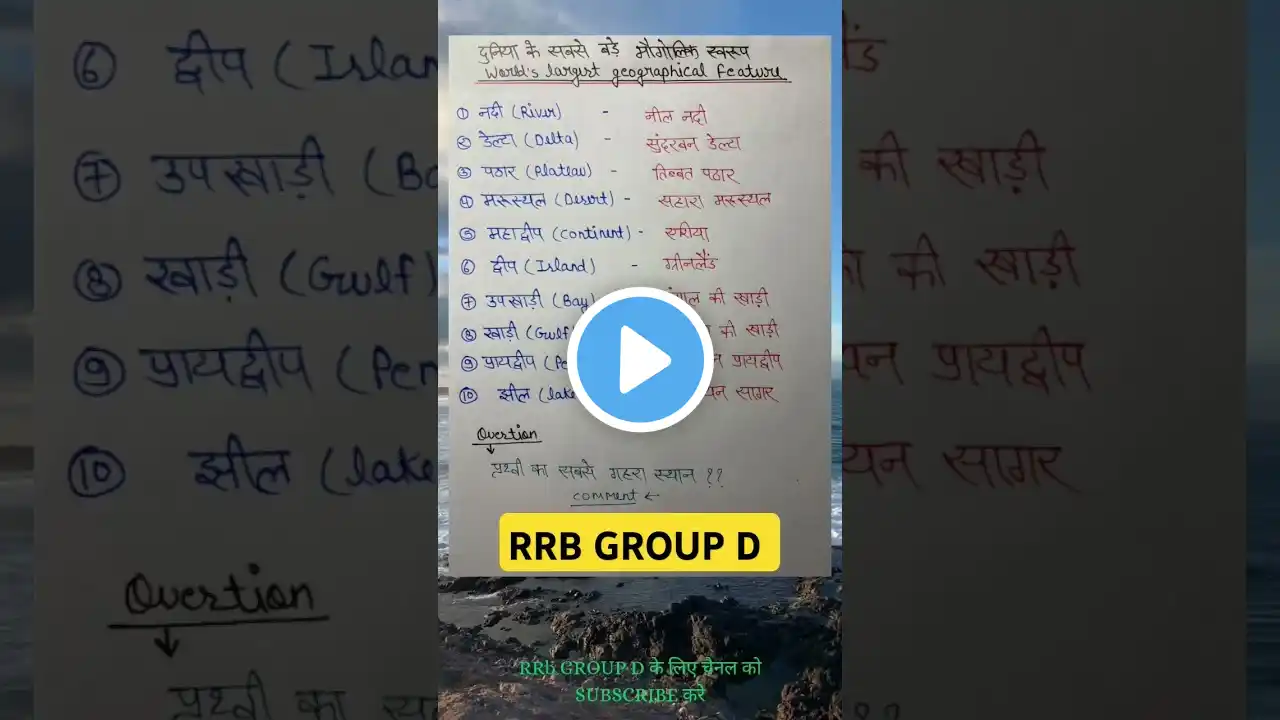 दुनिया के सबसे बड़े भौगोलिक स्वरूप
World's largest geographical Feature
① नदी (River) - नील नदी
② डेल्टा (Delta) - सुंदरबन डेल्टा
③ पठार (Plateau) - तिब्बत पठार
④ मरूस्थल (Desert) - सहारा मरूस्थल
⑤ महाद्वीप (Continent) - एशिया
⑥ द्वीप (Island) - ग्रीनलैंड
⑦ उपखाड़ी (Bay) की खाड़ी
⑧ खाड़ी (Gulf की खाड़ी
⑨ प्रायद्वीप प्रायद्वीप
⑩ झील (lake सागर
Question
पृथ्वी का सबसे गहरा स्थान ??
COMMENT ←
RRB GROUP D
RRb GROUP D के लिए चैनल को
SUBSCRIBE करे